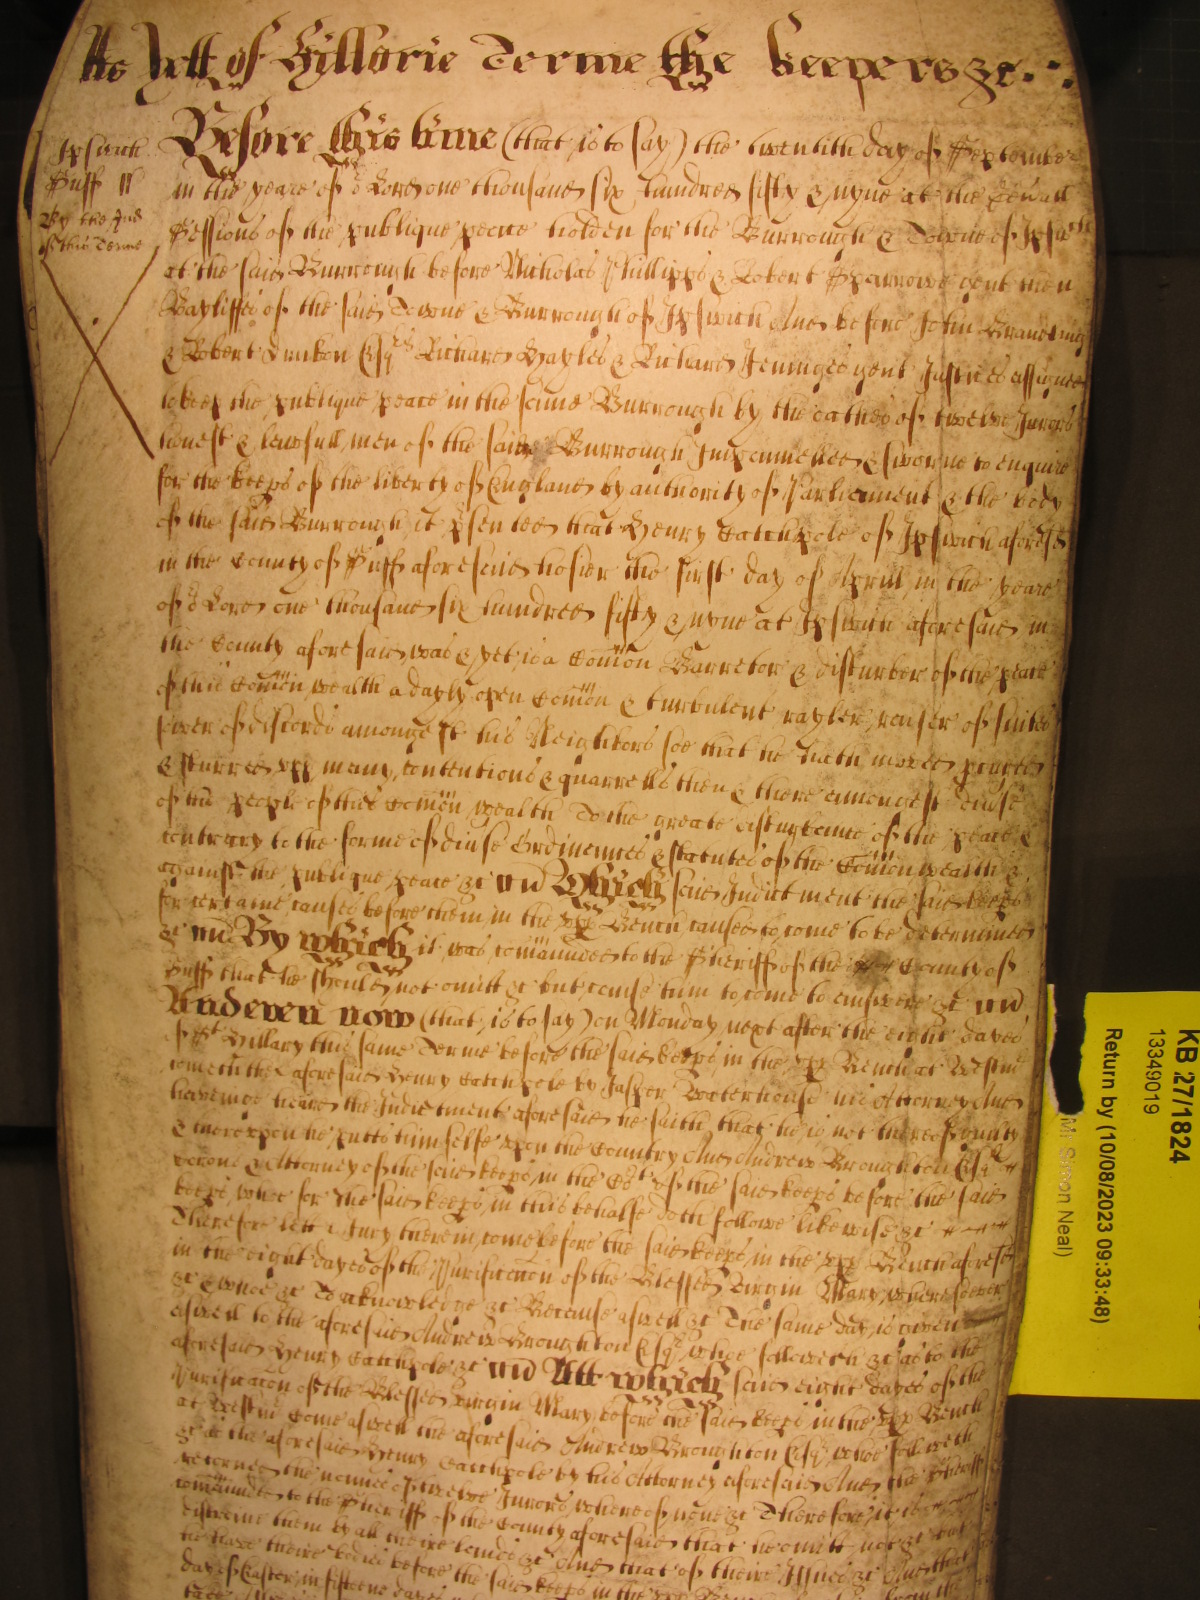 As yett of Hillarie Terme the Keepers &c.
Ipswich
Suff ss
By the Ind
of this Terme
Before this time (that is to say) the twentith day of September
in the yeare of or Lord one thousand six hundred fifty & nyne at the Genall
Sessions of the publique peace holden for the Burrough & Towne of Ipswich
at the said Burrough before Nicholas Phillipps & Robert Sparrowe gent men
Bayliffes of the said Towne & Burrough of Ipswich And before John Brandling
& Robert Dunkon Esqrs Richard Hayles & Richard Jeninges gent Justices assigned
to keep the publique peace in the same Burrough by the oathes of twelve Jurors
honest & lawfull men of the said Burrough Impannelled & sworne to enquire
for the keeps of the liberty of England by authority of Parliament & the body
of the said Burrough it psented that Henry Catchpole of Ipswich aforesd
in the County of Suff aforesaid hosier the first day of Aprill in the yeare
of or Lord one thousand six hundred fifty & nyne at Ipswich aforesaid in
the County aforesaid was & yet is a Comon Barretor & disturber of the peace
of this Comon wealth a dayly open Comon & turbulent rayler, raiser of suites
sower of discords amongest his Neighbors soe that he hath moved pcured
& sturred upp many contentions & quarrells then & there amongest divse
of the people of this Comon wealth To the greate disturbance of the peace &
contrary to the forme of divse Ordinances & statutes of the Comon wealth &
against the publique peace &c und Which said Indictment the said keeps
for certaine causes before them in the upp Bench caused to come to be determined
&c und By which it was comaunded to the Sheriff of the County of
Suff that he should not omitt &c but cause him to come to answere &c und
And even now (that is to say) on Monday next after the eight dayes
of St Hillary this same Terme before the said keeps in the upp Bench at Westmr
cometh the aforesaid Henry Catchpole by Jasper Waterhouse his Attorney And
haveinge heard the Indictment aforesaid he saith that he is not thereof guilty
& thereupon he putts himselfe upon the Country And Andrew Broughton Esqr
Corone & Attorney of the said keeps in the Cot of the said keeps before the said
keeps, whoe for the said keeps in this behalfe doth followe likewise &c
Therefore lett a Jury therein come before the said keeps in the upp Bench aforesd
in the eight dayes of the Purificacon of the Blessed Virgin Mary, wheresoever
&c & whoe &c To acknowledge &c Because aswell &c The same day is given
aswell to the aforesaid Andrew Broughton Esqr, whoe followeth &c as to the
aforesaid Henry Catchpole &c und Att which said eight dayes of the
Purificacon of the Blessed virgin Mary before the said keeps in the upp Bench
at Westmr come aswell the aforesaid Andrew Broughton Esqr, whoe followeth
&c as the aforesaid Henry Catchpole by his Attorney aforesaid And the Sheriff
retorned the names of twelve Jurors, whereof none &c Therefore it is
comaunded to the Sheriff of the County aforesaid that he omitt not &c but
distreine them by all theire lands &c And that of theire Issues &c And that
he have theire bodies before the said keeps in the upp Bench from the
day of Easter in fifteene dayes
KB 27/1824
13349019
Return by (10/08/2023 09:33:48)
Mr Simon Neal)